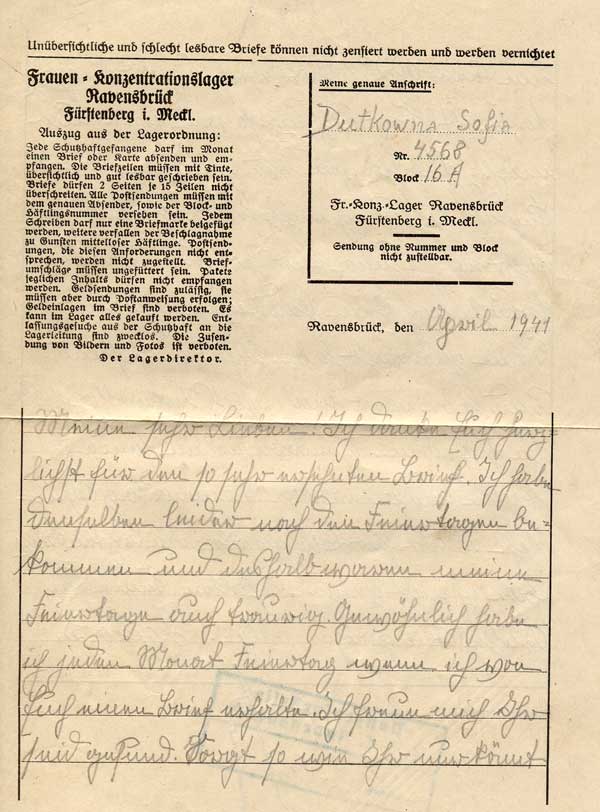 Unübersichtliche und schlecht lesbare Briefe können nicht zensiert werden und werden vernichtet
Frauen-Konzentrationslager
Ravensbrück
Fürstenberg i. Meckl.
Auszug aus der Lagerordnung:
Jede Schutzhaftgefangene darf im Monat
einen Brief oder Karte absenden und em-
pfangen. Die Briefzeilen müssen mit Tinte,
übersichtlich und gut lesbar geschrieben sein.
Briefe dürfen 2 Seiten je 15 Zeilen nicht
überschreiten. Alle Postsendungen müssen mit
dem genauen Absender, sowie der Block- und
Häftlingsnummer versehen sein. Jedem
Schreiben darf nur eine Briefmarke beigefügt
werden, weitere verfallen der Beschlagnahme
zu Gunsten mittelloser Häftlinge. Postsendun-
gen, die diesen Anforderungen nicht ent-
sprechen, werden nicht zugestellt. Brief-
umschläge müssen ungefüttert sein. Pakete
jeglichen Inhalts dürfen nicht empfangen
werden. Geldsendungen sind zulässig, sie
müssen aber durch Postanweisung erfolgen;
Geldeinlagen im Brief sind verboten. Es
kann im Lager alles gekauft werden. Ent-
lassungsgesuche aus der Schutzhaft an die
Lagerleitung sind zwecklos. Die Zusen-
dung von Bildern und Fotos ist verboten.
Der Lagerdirektor.
Meine genaue Anschrift:
Dutkowna Sofia
Nr. 4568
Block 16 A
Fr.-Konz.-Lager Ravensbrück
Fürstenberg i. Meckl.
Sendung ohne Nummer und Block
nicht zustellbar.
Ravensbrück, den April 1941
Meine sehr Lieben! Ich danke Euch herz-
lichst für den so sehr ersehnten Brief. Ich habe
denselben leider nach den Feiertagen be-
kommen und deshalb waren meine
Feiertage auch traurig. Gewöhnlich habe
ich jeden Monat Feiertag wenn ich von
Euch einen Brief erhalte. Ich freue mich Ihr
seid gesund. Sorgt so wie Ihr nur könnt